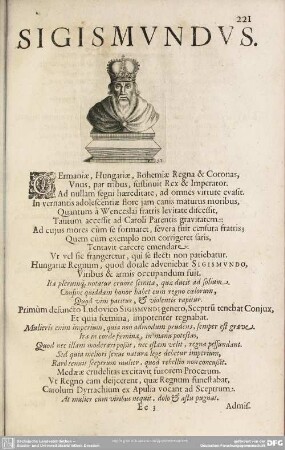 221
SIGISMVNDVS.
GErmaniæ, Hungariæ, Bohemiæ Regna & Coronas,
Vnus, par tribus, sustinuit Rex & Imperator.
Ad nullam segni hæreditate, ad omnes virtute evasit.
In vernantis adolescentiæ flore jam canis maturus moribus,
Quantum à Wenceslai fratris levitate discessit,
Tantum accessit ad Caroli Parentis gravitatem:
Ad cujus mores cùm se formaret, severa fuit censura fratris;
Quem cùm exemplo non corrigeret suis,
Tentavit carcere emendare.
Ut vel sic frangeretur, qui se flecti non patiebatur.
Hungariæ Regnum, quod dotale adveniebat SIGISMUNDO,
Viribus & armis occupandum fuit.
Ita plerumq; notatur cruore semita, quæ ducit ad solium.
Cujus quiddam honor habet cum regno cælorum,
Quod vim patitur, & violenter rapitur.
Primùm defuncto Ludovico SIGISMUNDI genero, Sceptrū tenebat Conjux,
Et quia fœmina, impotenter regnabat.
Mulieris enim imperium, quia non admodum prudens, semper est grave.
Ita in corde fœmina, in manu potestas,
Quod nec illam moderari possit, nec istam velit, regna pessundant.
Sed quia melioris sexus natura lege debetur imperium,
Rarò tenuit sceptrum mulier, quod rebelles non concussit.
Medræ crudelitas excitavit furorem Procerum.
Ut Regno eam dejicerent, quæ Regnum funestabat,
Carolum Dyrrachium ex Apulia vocant ad Sceptrum.
At mulier cum viribus nequit, dolo & astu pugnat.
Ee 3
Admis.